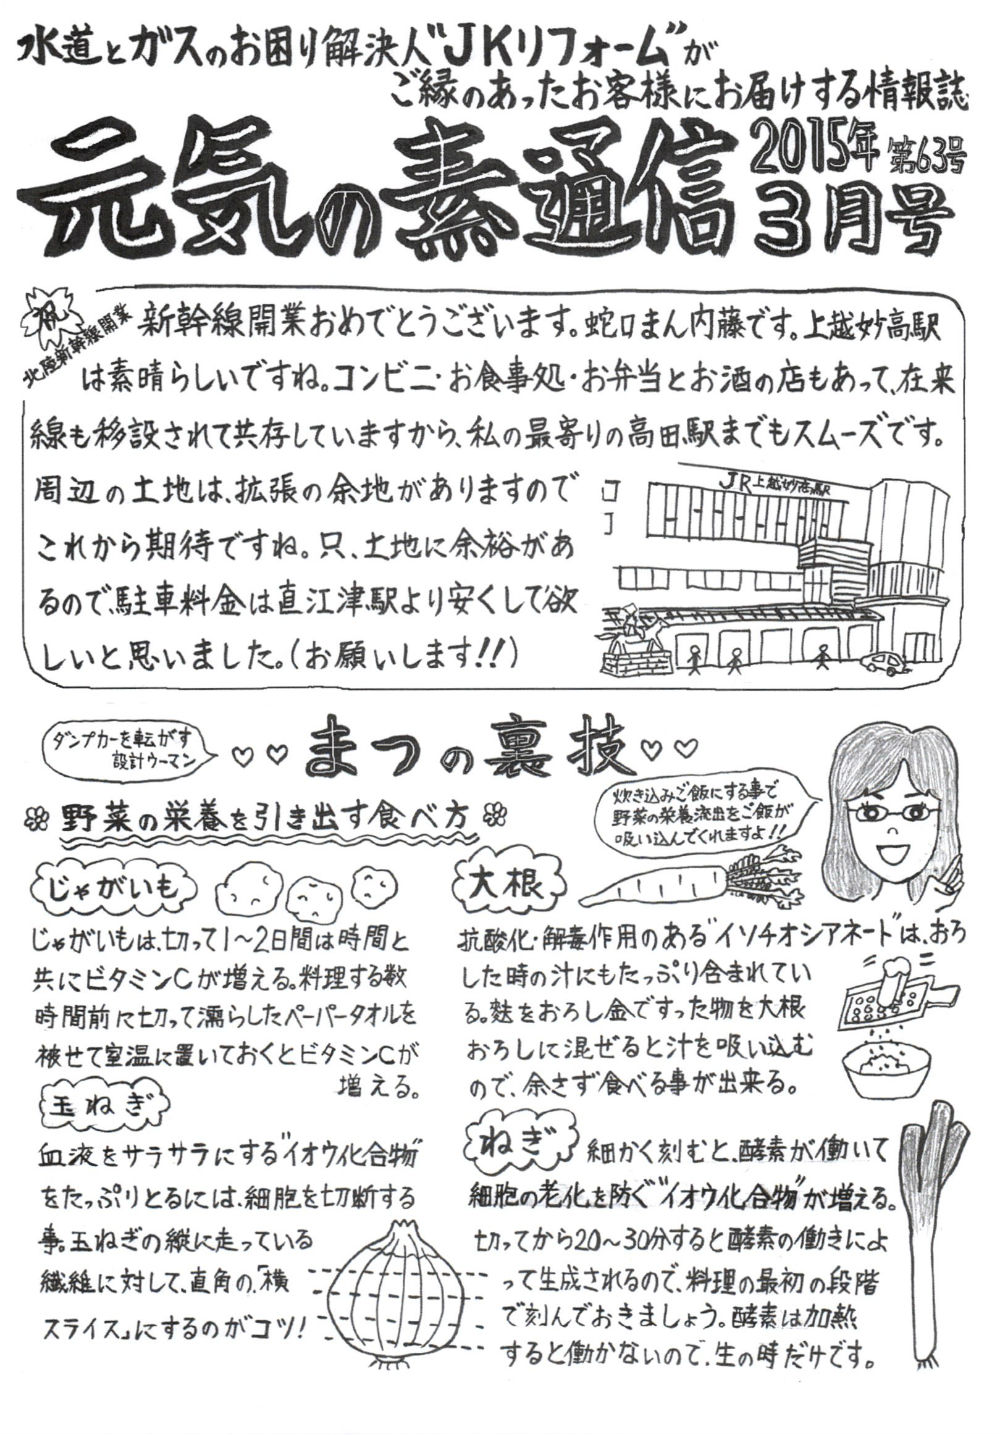 水道とガスのお困り解決人"JKリフォーム"が
ご縁のあったお客様にお届けする情報誌
元気の素通信
2015年 第63号
3月号
祝
北陸新幹線開業
新幹線開業おめでとうございます。蛇口まん内藤です。上越妙高駅
は素晴らしいですね。コンビニ・お食事処・お弁当とお酒の店もあって、在来
線も移設されて共存していますから、私の最寄りの高田駅までもスムーズです。
周辺の土地は、拡張の余地がありますので
これから期待ですね。只、土地に余裕があ
るので、駐車料金は直江津駅より安くして欲
しいと思いました。(お願いします!!)
JR上越妙高駅
ダンプカーを転がす
設計ウーマン
♡♡まつの裏技♡♡
野菜の栄養を引き出す食べ方
炊き込みご飯にする事で
野菜の栄養流出をご飯が
吸い込んでくれますよ!!
じゃがいも
じゃがいもは、切って1〜2日間は時間と
共にビタミンCが増える。料理する数
時間前に切って濡らしたペーパータオルを
被せて室温に置いておくとビタミンCが
増える。
玉ねぎ
血液をサラサラにする"イオウ化合物"
をたっぷりとるには、細胞を切断する
事。玉ねぎの縦に走っている
繊維に対して、直角の、「横
スライス」にするのがコツ!
大根
抗酸化・解毒作用のある"イソチオシアネート"は、おろ
した時の汁にもたっぷり含まれてい
る。麩をおろし金ですった物を大根
おろしに混ぜると汁を吸い込む
ので、余さず食べる事が出来る。
ねぎ
細かく刻むと、酵素が働いて
細胞の老化を防ぐ"イオウ化合物"が増える。
切ってから20〜30分すると酵素の働きによ
って生成されるので、料理の最初の段階
で刻んでおきましょう。酵素は加熱
すると働かないので、生の時だけです。